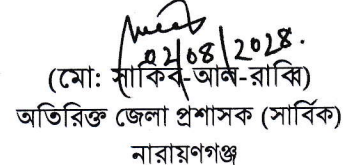 02/08/2028.
(মো: সাকিব-আল-রাব্বি)
অতিরিক্ত জেলা প্রশাসক (সার্বিক)
নারায়ণগঞ্জ